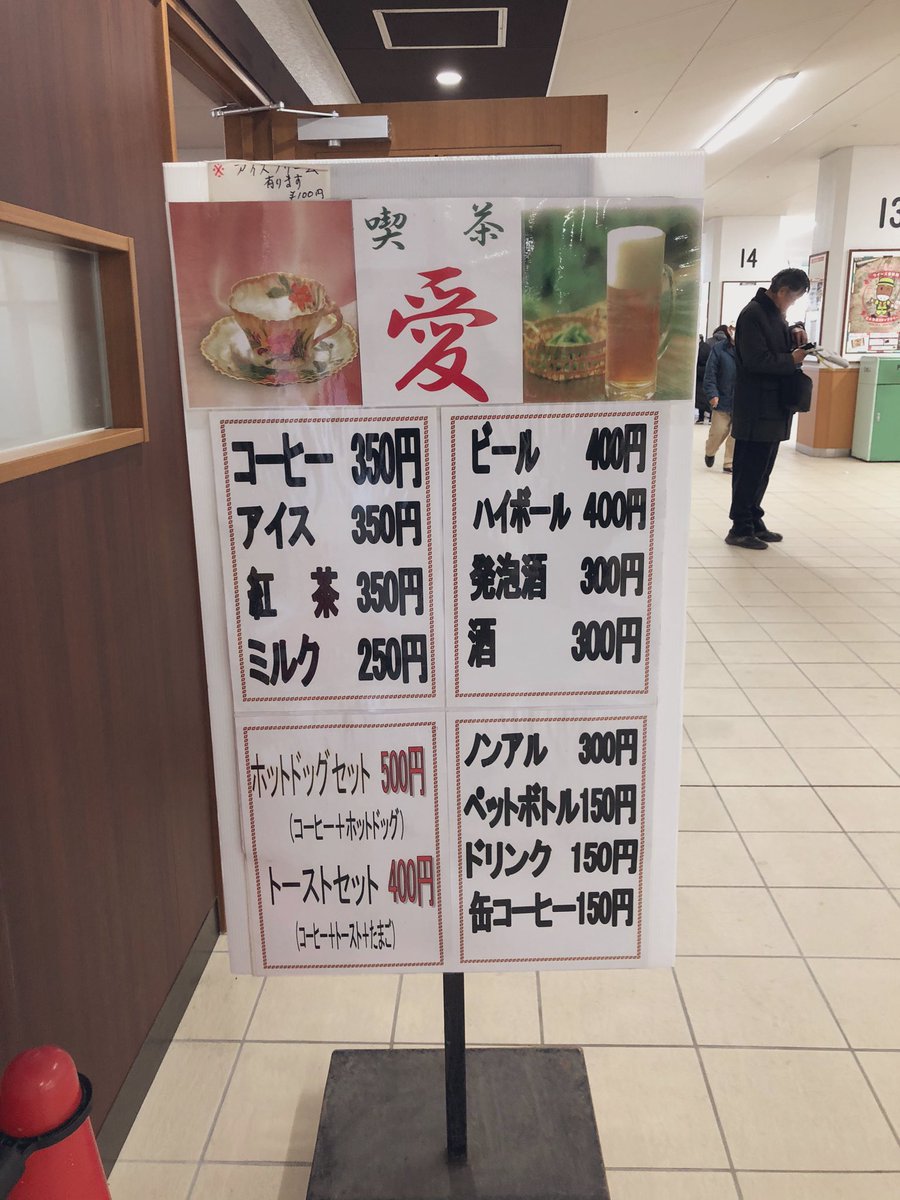 ※ アイスクリーム
有ります
¥100円
喫 茶
愛
コーヒー 350円
アイス 350円
紅 茶 350円
ミルク 250円
ビール 400円
ハイボール 400円
発泡酒 300円
酒 300円
ホットドッグセット 500円
(コーヒー+ホットドッグ)
トーストセット 400円
(コーヒー+トースト+たまご)
ノンアル 300円
ペットボトル150円
ドリンク 150円
缶コーヒー150円
14
13